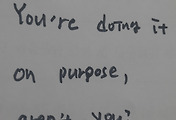 You're doing it
on purpose,
aren't you?